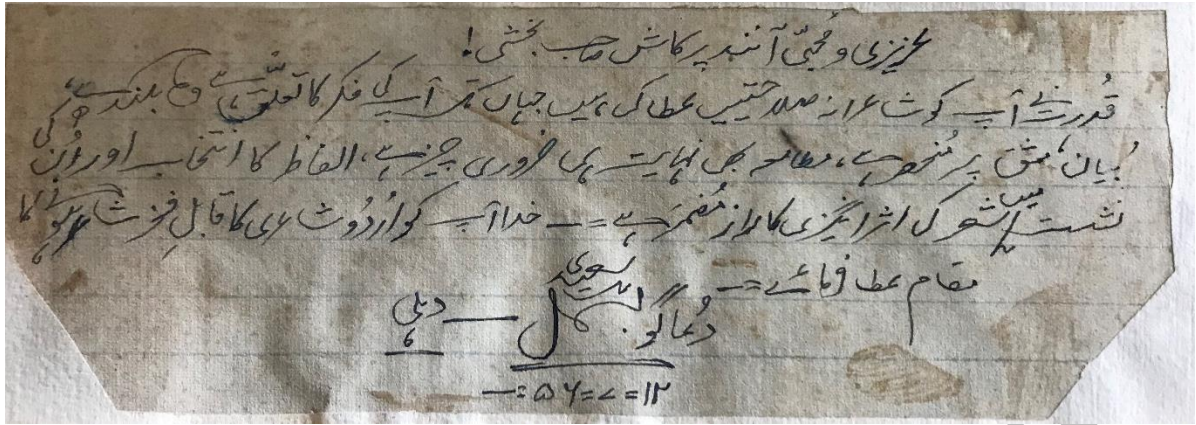 عزیزی و مُحبّی آنند پرکاش صاحب بخشی!
قُدرت نے آپ کو شاعرانہ صلاحیتیں عطا کی ہیں جہاں تک آپ کی فکر کا تعلّق ہے وہ بلند ہے،
بیان، مشق پر مُنحصر ہے، مطالعہ بھی نہایت ہی ضروری چیز ہے، الفاظ کا انتخاب اور اُن کی
نشست میں شعر کی اثر انگیزی کا راز مُضمر ہے ـــ خدا آپ کو اُردو شاعری کا قابلِ فخر شاعر ہونے کا
مقام عطا فرمائے ــ
دُعا گو بسمل سعیدی ــــ دہلی
۱۲=۷=۵۶ــ